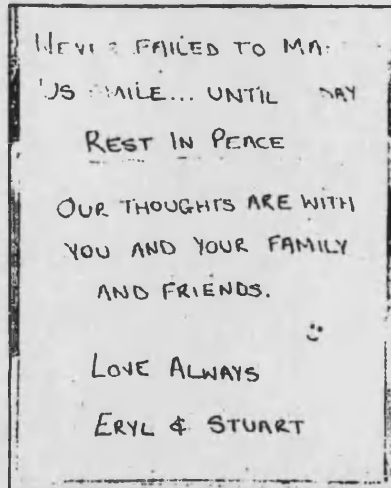 FAILED TO
UNTIL
REST IN PEACE
OUR THOUGHTS ARE WITH
YOU AND YOUR FAMILY
AND FRIENDS.
LOVE ALWAYS
ERYL & STUART